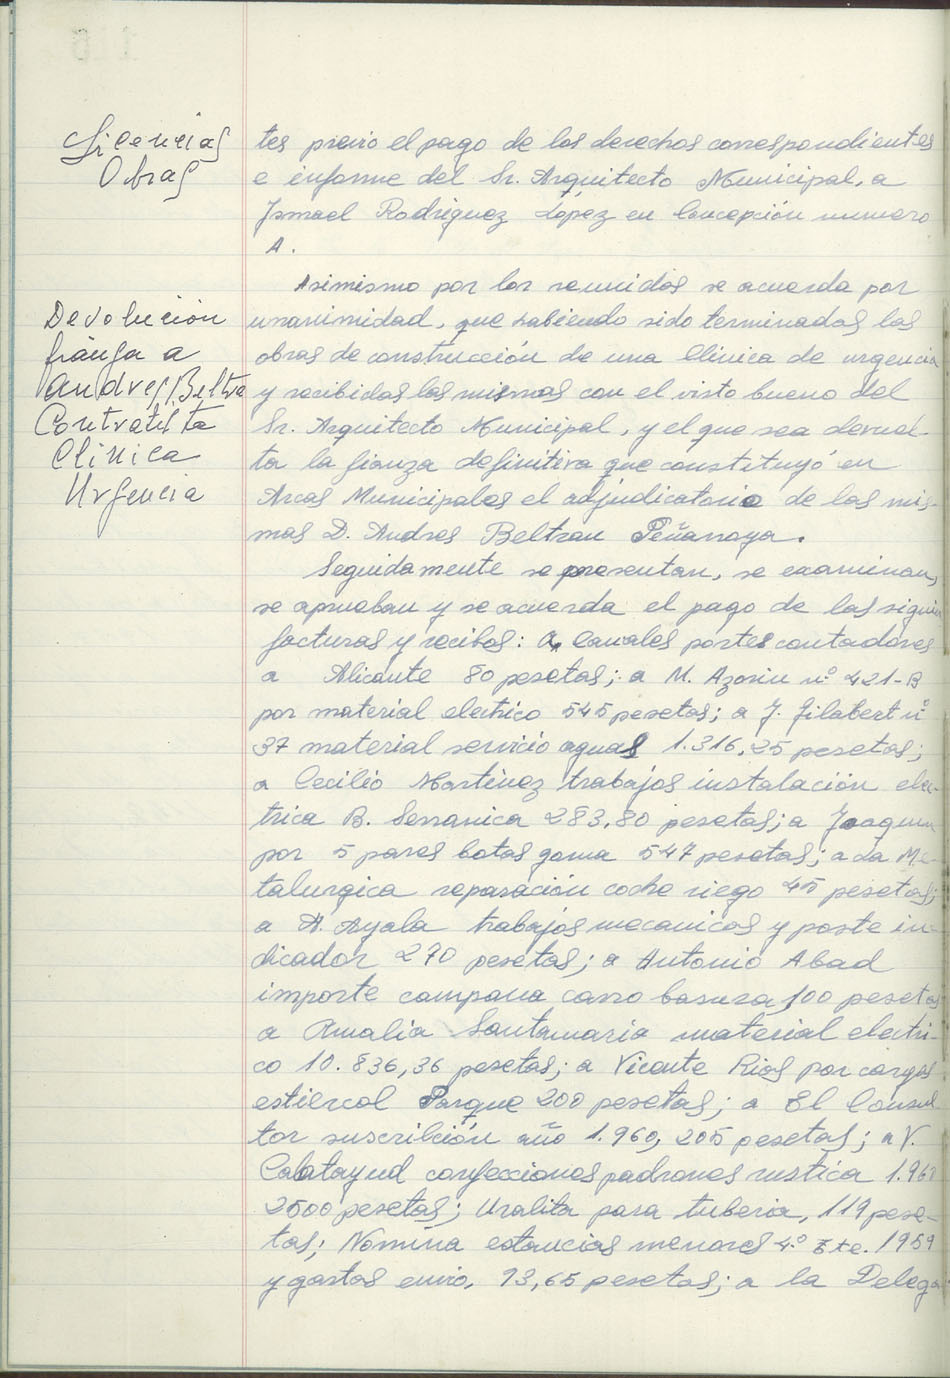 Licencias
Obras
tes previo el pago de los derechos correspondientes
e informe del Sr. Arquitecto Municipal, a
Ismael Rodriguez López en Concepción numero
A.
Devolución
fianza a
Andres Beltra
Contratista
Clinica
Urgencia
Asimismo por los reunidos se acuerda por
unanimidad, que habiendo sido terminadas las
obras de construcción de una Clinica de urgencia
y recibidas las mismas con el visto bueno del
Sr. Arquitecto Municipal, y el que sea devuel-
ta la fianza definitiva que constituyó en
Arcas Municipales el adjudicatorio de las mis-
mas D. Andres Beltran Peñarroya.
Seguidamente se presentan, se examinan,
se aprueban y se acuerda el pago de las siguien
facturas y recibos: a Canales portes contadores
a Alicante 80 pesetas; a M. Azorin nº 421-B
por material electrico 545 pesetas; a J. Gilabert nº
37 material servicio aguas 1.316,25 pesetas;
a Cecilio Martinez trabajos instalación elec-
trica B. Serranica 283,80 pesetas; a Joaquin
por 5 pares botas goma 547 pesetas; a La Me-
talurgica reparación coche riego 45 pesetas;
a A. Ayala trabajos mecanicos y poste in-
dicador 270 pesetas; a Antonio Abad
importe campana carro basura 100 pesetas
a Amalia Santamaria material electri-
co 10.836,36 pesetas; a Vicente Rios por cargas
estiercol Parque 200 pesetas; a El Consul
tor suscribción año 1.960, 205 pesetas; a V.
Calatayud confecciones padrones rustica 1.960
2500 pesetas; Uralita para tuberia, 119 pese-
tas; Nómina estancias menores 4º Tte. 1959
y gastos envio, 93,65 pesetas; a la Delega